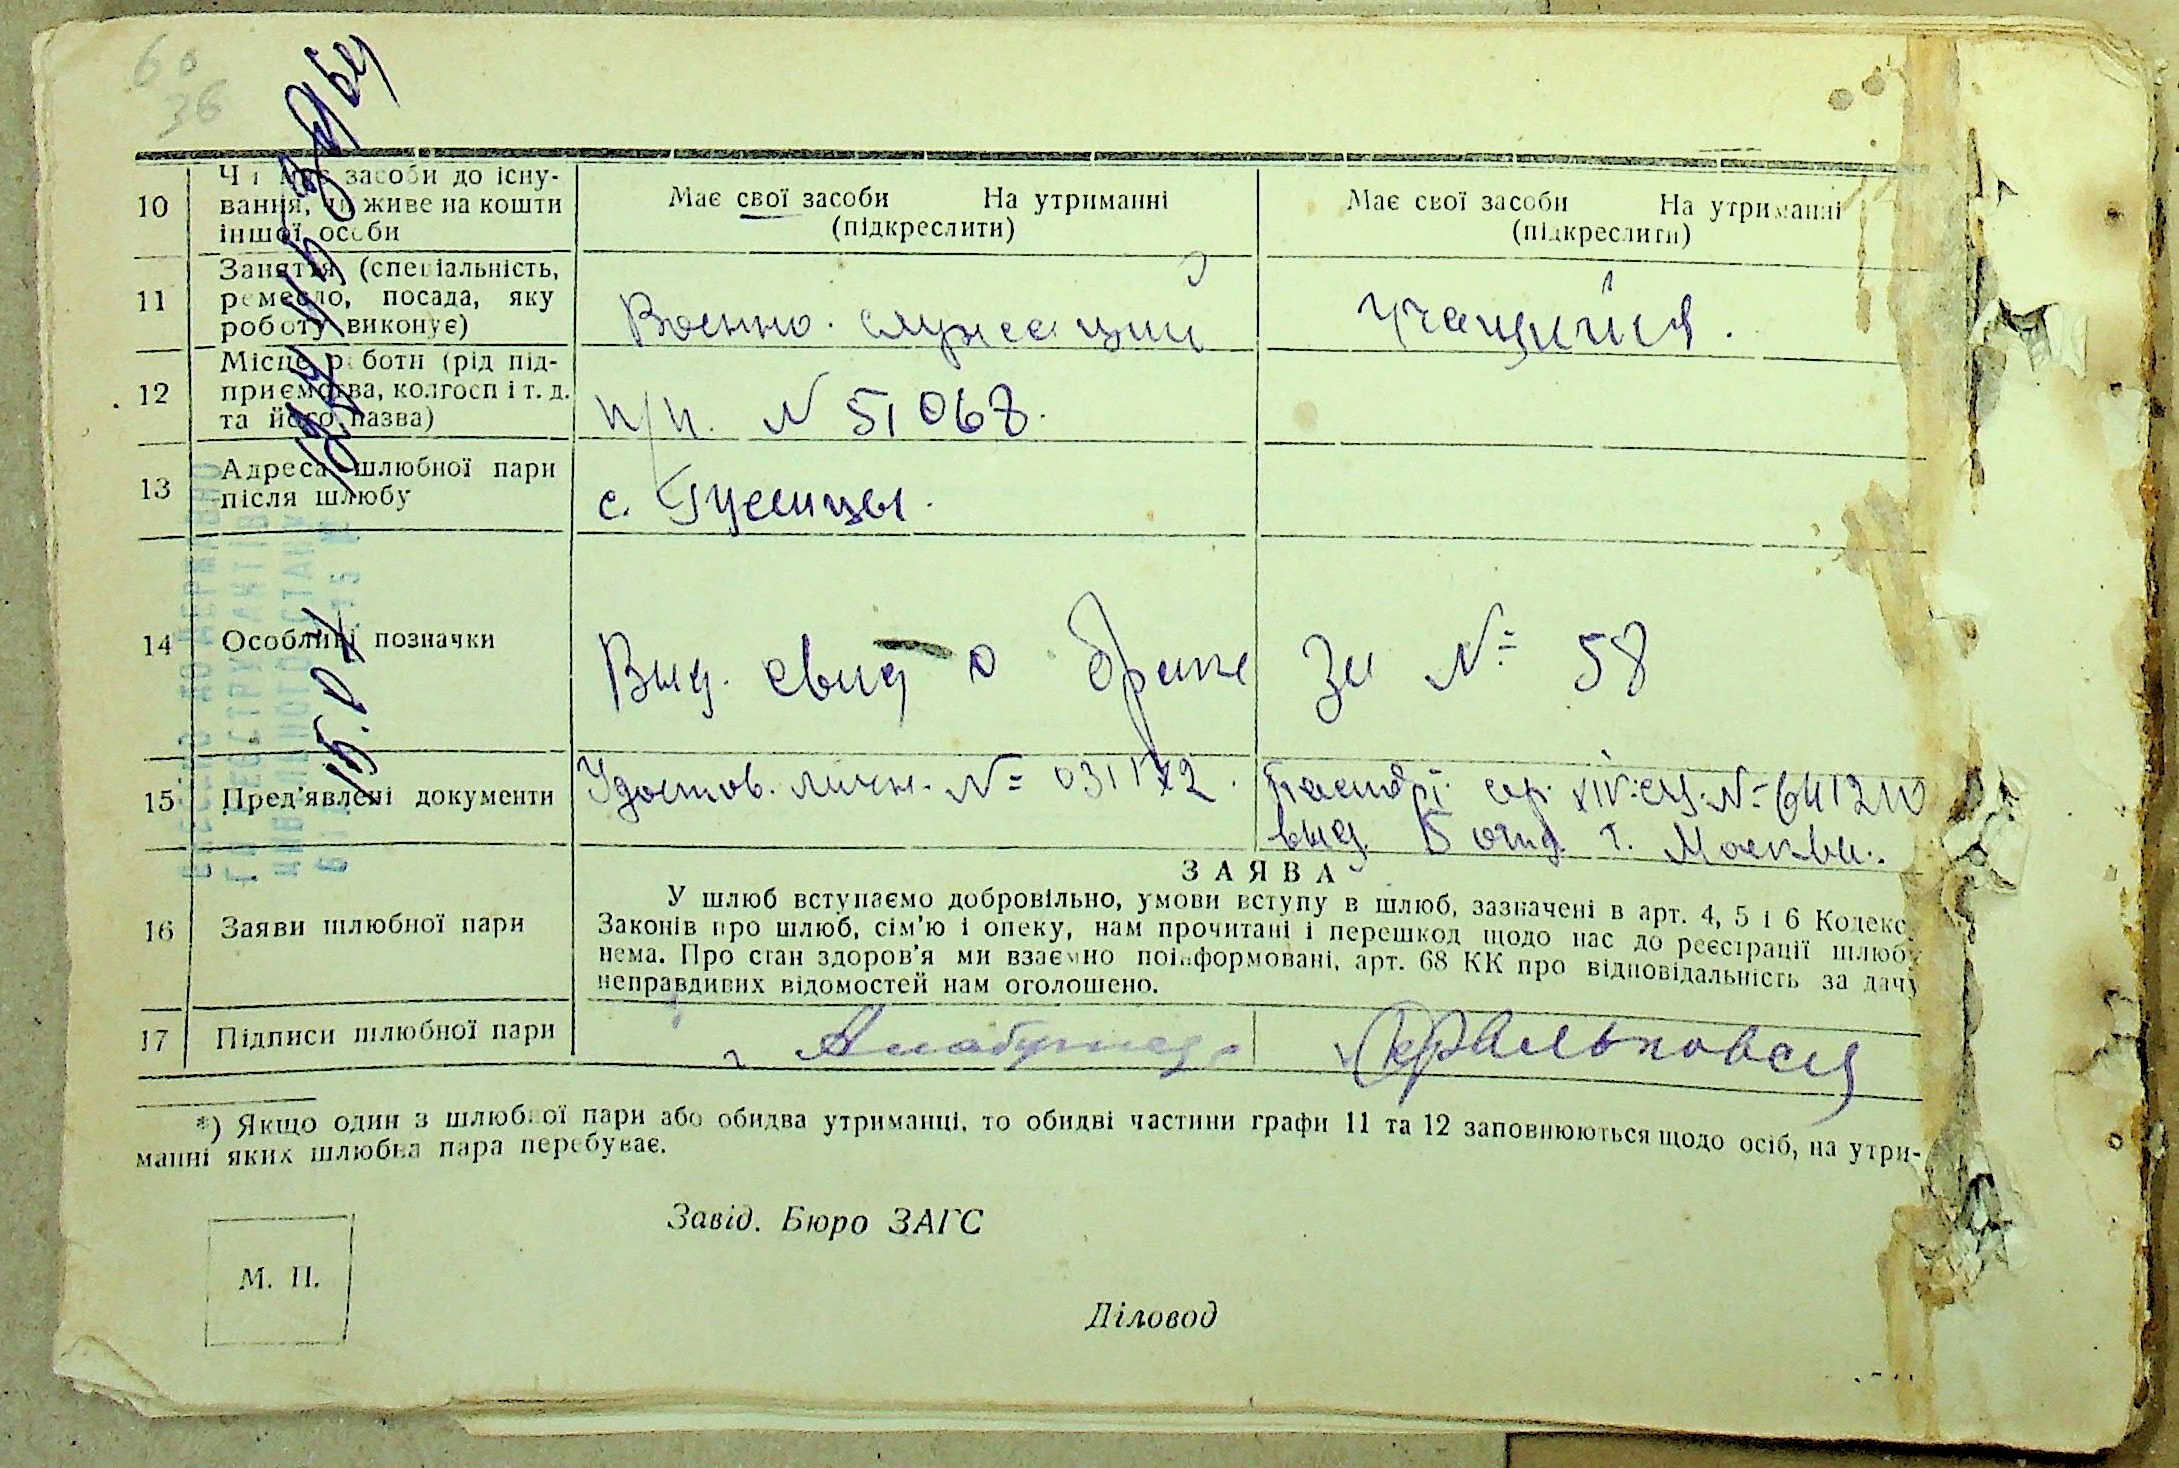 60
36
10
Чи має засоби до існу-
вання, чи живе на кошти
іншої особи
Має свої засоби На утриманні
(підкреслити)
Має свої засоби На утриманні
(підкреслити)
11
Заняття (спеціальність,
ремесло, посада, яку
роботу виконує)
Военно. служащий
Учащийся.
12
Місце роботи (рід під-
приємства, колгосп і т. д.
та його назва)
п/п. N 51068.
13
Адреса шлюбної пари
після шлюбу
с. Гусинцы.
14
Особливі позначки
Выд. свид о браке За № 58
15
Пред'явлені документи
Удостов. личн. №
Паспорт. сер. XIV. СЦ. № 641210
выд 5 отд. г. Москвы.
16
Заяви шлюбної пари
ЗАЯВА
У шлюб вступаємо добровільно, умови вступу в шлюб, зазначені в арт. 4, 5 і 6 Кодекс
Законів про шлюб, сім'ю і опеку, нам прочитані і перешкод щодо нас до реєстрації шлюбу
нема. Про стан здоров'я ми взаємно поінформовані, арт. 68 КК про відповідальність за дачу
неправдивих відомостей нам оголошено.
17
Підписи шлюбної пари
*) Якщо один з шлюбної пари або обидва утриманці, то обидві частини графи 11 та 12 заповнюються щодо осіб, на утри-
манні яких шлюбна пара перебуває.
Завід. Бюро ЗАГС
М. П.
Діловод